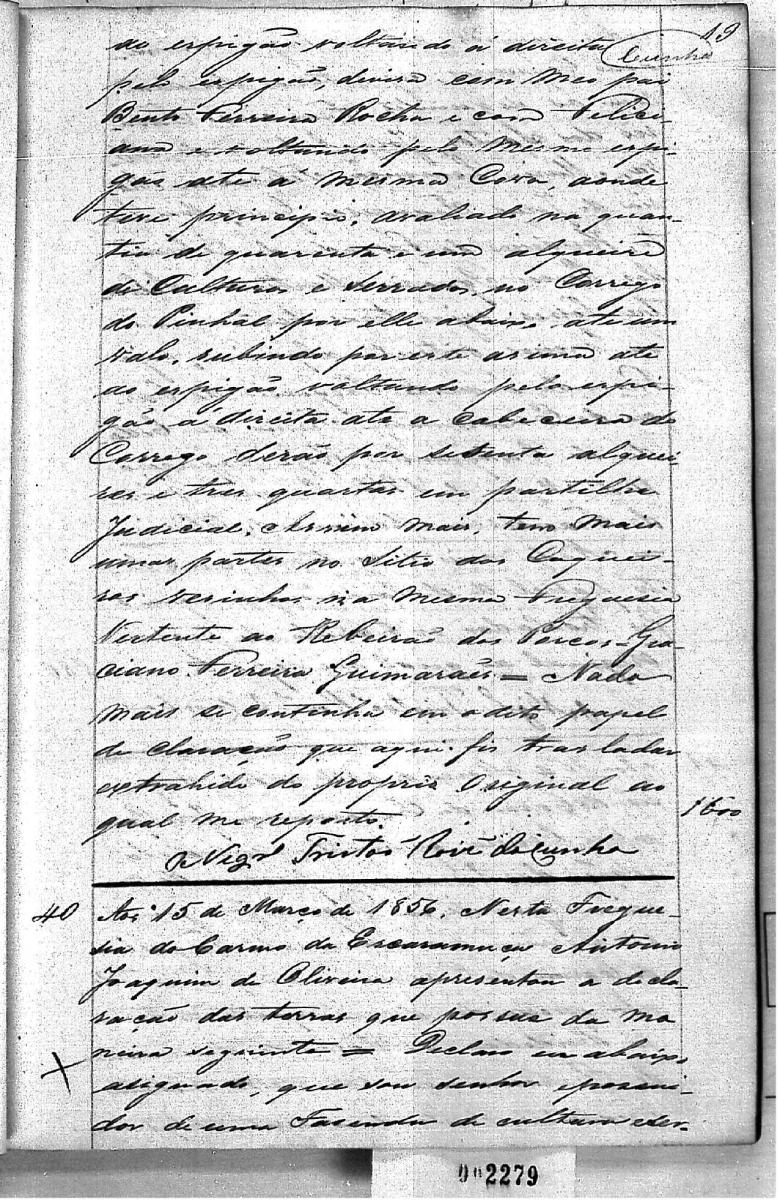 19
Cunha
ao espigão voltando á direita
pelo espigão, divisa com meo pai
Bento Ferreira Rocha e com Felici-
ana e voltando pelo mesmo espi-
gão até á mesma Cova, aonde
teve principio, avaliado na quan-
tia de quarenta e um alqueire
de Culturas e Serrados, no Corrego
do Pinhal por elle abaixo até um
valo, subindo por este asima ate
ao espigão voltando pelo espi-
gão á direita até a cabeceira do
Corrego Serão por setenta alquei-
res e tres quartas em partilha
Judicial. Assim mais, tenho mais
umas partes no Sitio dos Coquei-
ros vesinhos na mesma Freguesia
Vertente ao Rebeirão dos Porcos = Gra-
ciano Ferreira Guimarães = Nada
mais se continha em o dito papel
de claração que aqui fis trasladar
extrahido do proprio Original ao
qual me reporto.
1600
O Vigrº Tristos da Cunha
40 Aos 15 de Março de 1856. Nesta Fregue-
sia do Carmo da Escaramuça Antonio
Joaquim de Oliveira apresentou a decla-
ração das terras que possue da ma
neira seguinte = Declaro eu abaixo
asignado, que sou senhor eposui-
dor de uma Fasenda de cultura eser-
002279